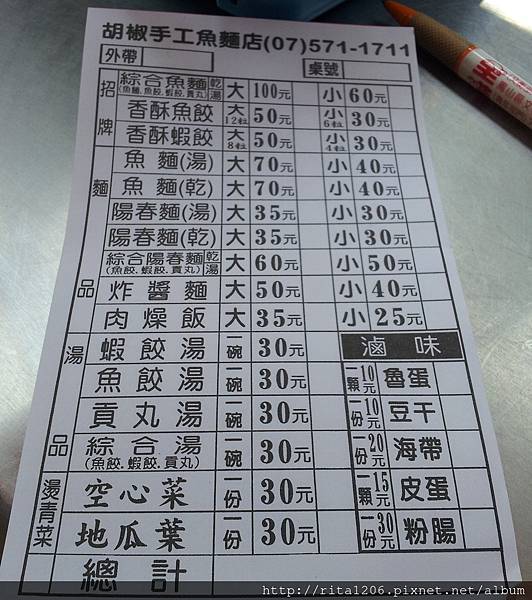 胡椒手工魚麵店(07)571-1711
外帶 桌號
招牌
綜合魚麵(魚麵.魚餃.蝦餃.貢丸) 乾湯 大 100元 小 60元
香酥魚餃 大12粒 50元 小6粒 30元
香酥蝦餃 大8粒 50元 小4粒 30元
麵品
魚麵(湯) 大 70元 小 40元
魚麵(乾) 大 70元 小 40元
陽春麵(湯) 大 35元 小 30元
陽春麵(乾) 大 35元 小 30元
綜合陽春麵(魚餃.蝦餃.貢丸) 乾湯 大 60元 小 50元
炸醬麵 大 50元 小 40元
肉燥飯 大 35元 小 25元
湯品 滷味
蝦餃湯 一碗 30元
魚餃湯 一碗 30元 一顆 10元 魯蛋
貢丸湯 一碗 30元 一份 10元 豆干
綜合湯(魚餃.蝦餃.貢丸) 一碗 30元 一份 20元 海帶
燙青菜
空心菜 一份 30元 一顆 15元 皮蛋
地瓜葉 一份 30元 一份 30元 粉腸
總計
http://rita1206.pixnet.net/album